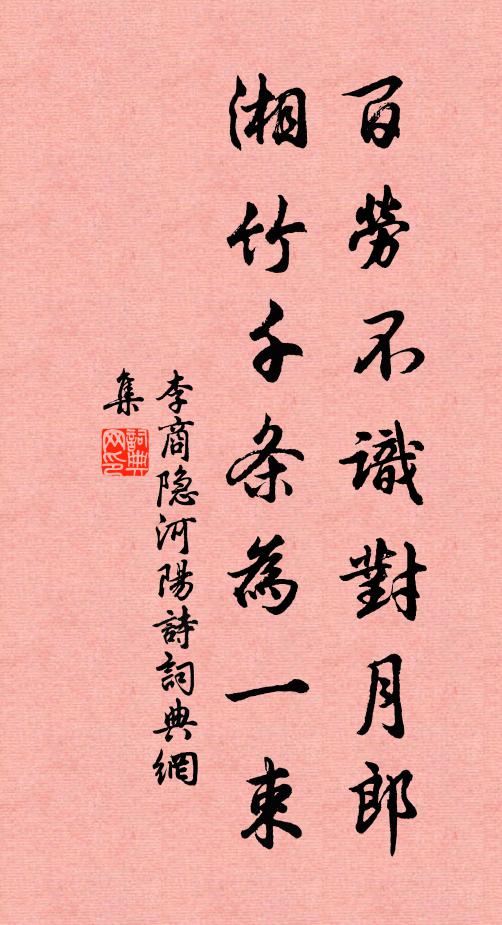 百勞不識對月郎
湘竹千条為一束
李商隐河陽詩詞典網
集
詞典网印